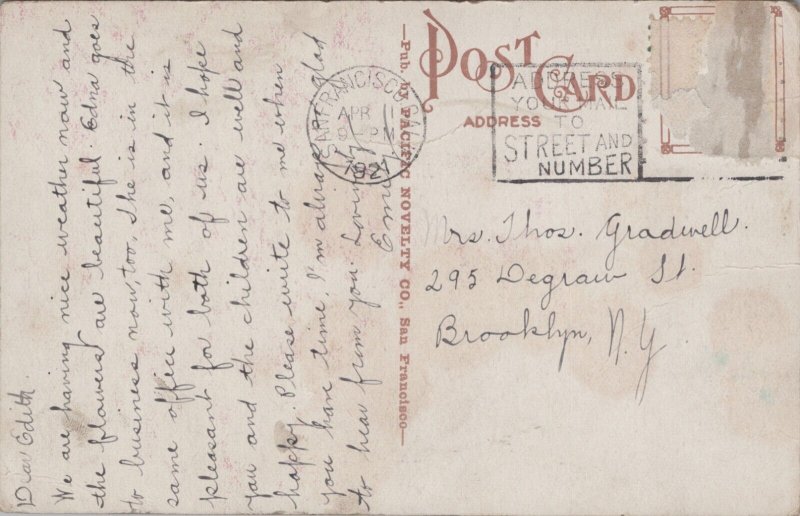 Dear Edith
We are having nice weather now and
the flowers are beautiful. Edna goes
to business now, too. She is in the
same office with me, and it is
pleasant for both of us. I hope
you and the children are well and
happy. Please write to me when
you have time. I'm always glad
to hear from you. Lovingly
—Pub. by PACIFIC NOVELTY CO., San Francisco—
POST CARD
ADDRESS
SAN FRANCISCO
APR 11
192
ADDRESS
YOUR MAIL
TO
STREET AND
NUMBER
Mrs. Thos. Gradwell.
295 Degraw St.
Brooklyn, N.Y.